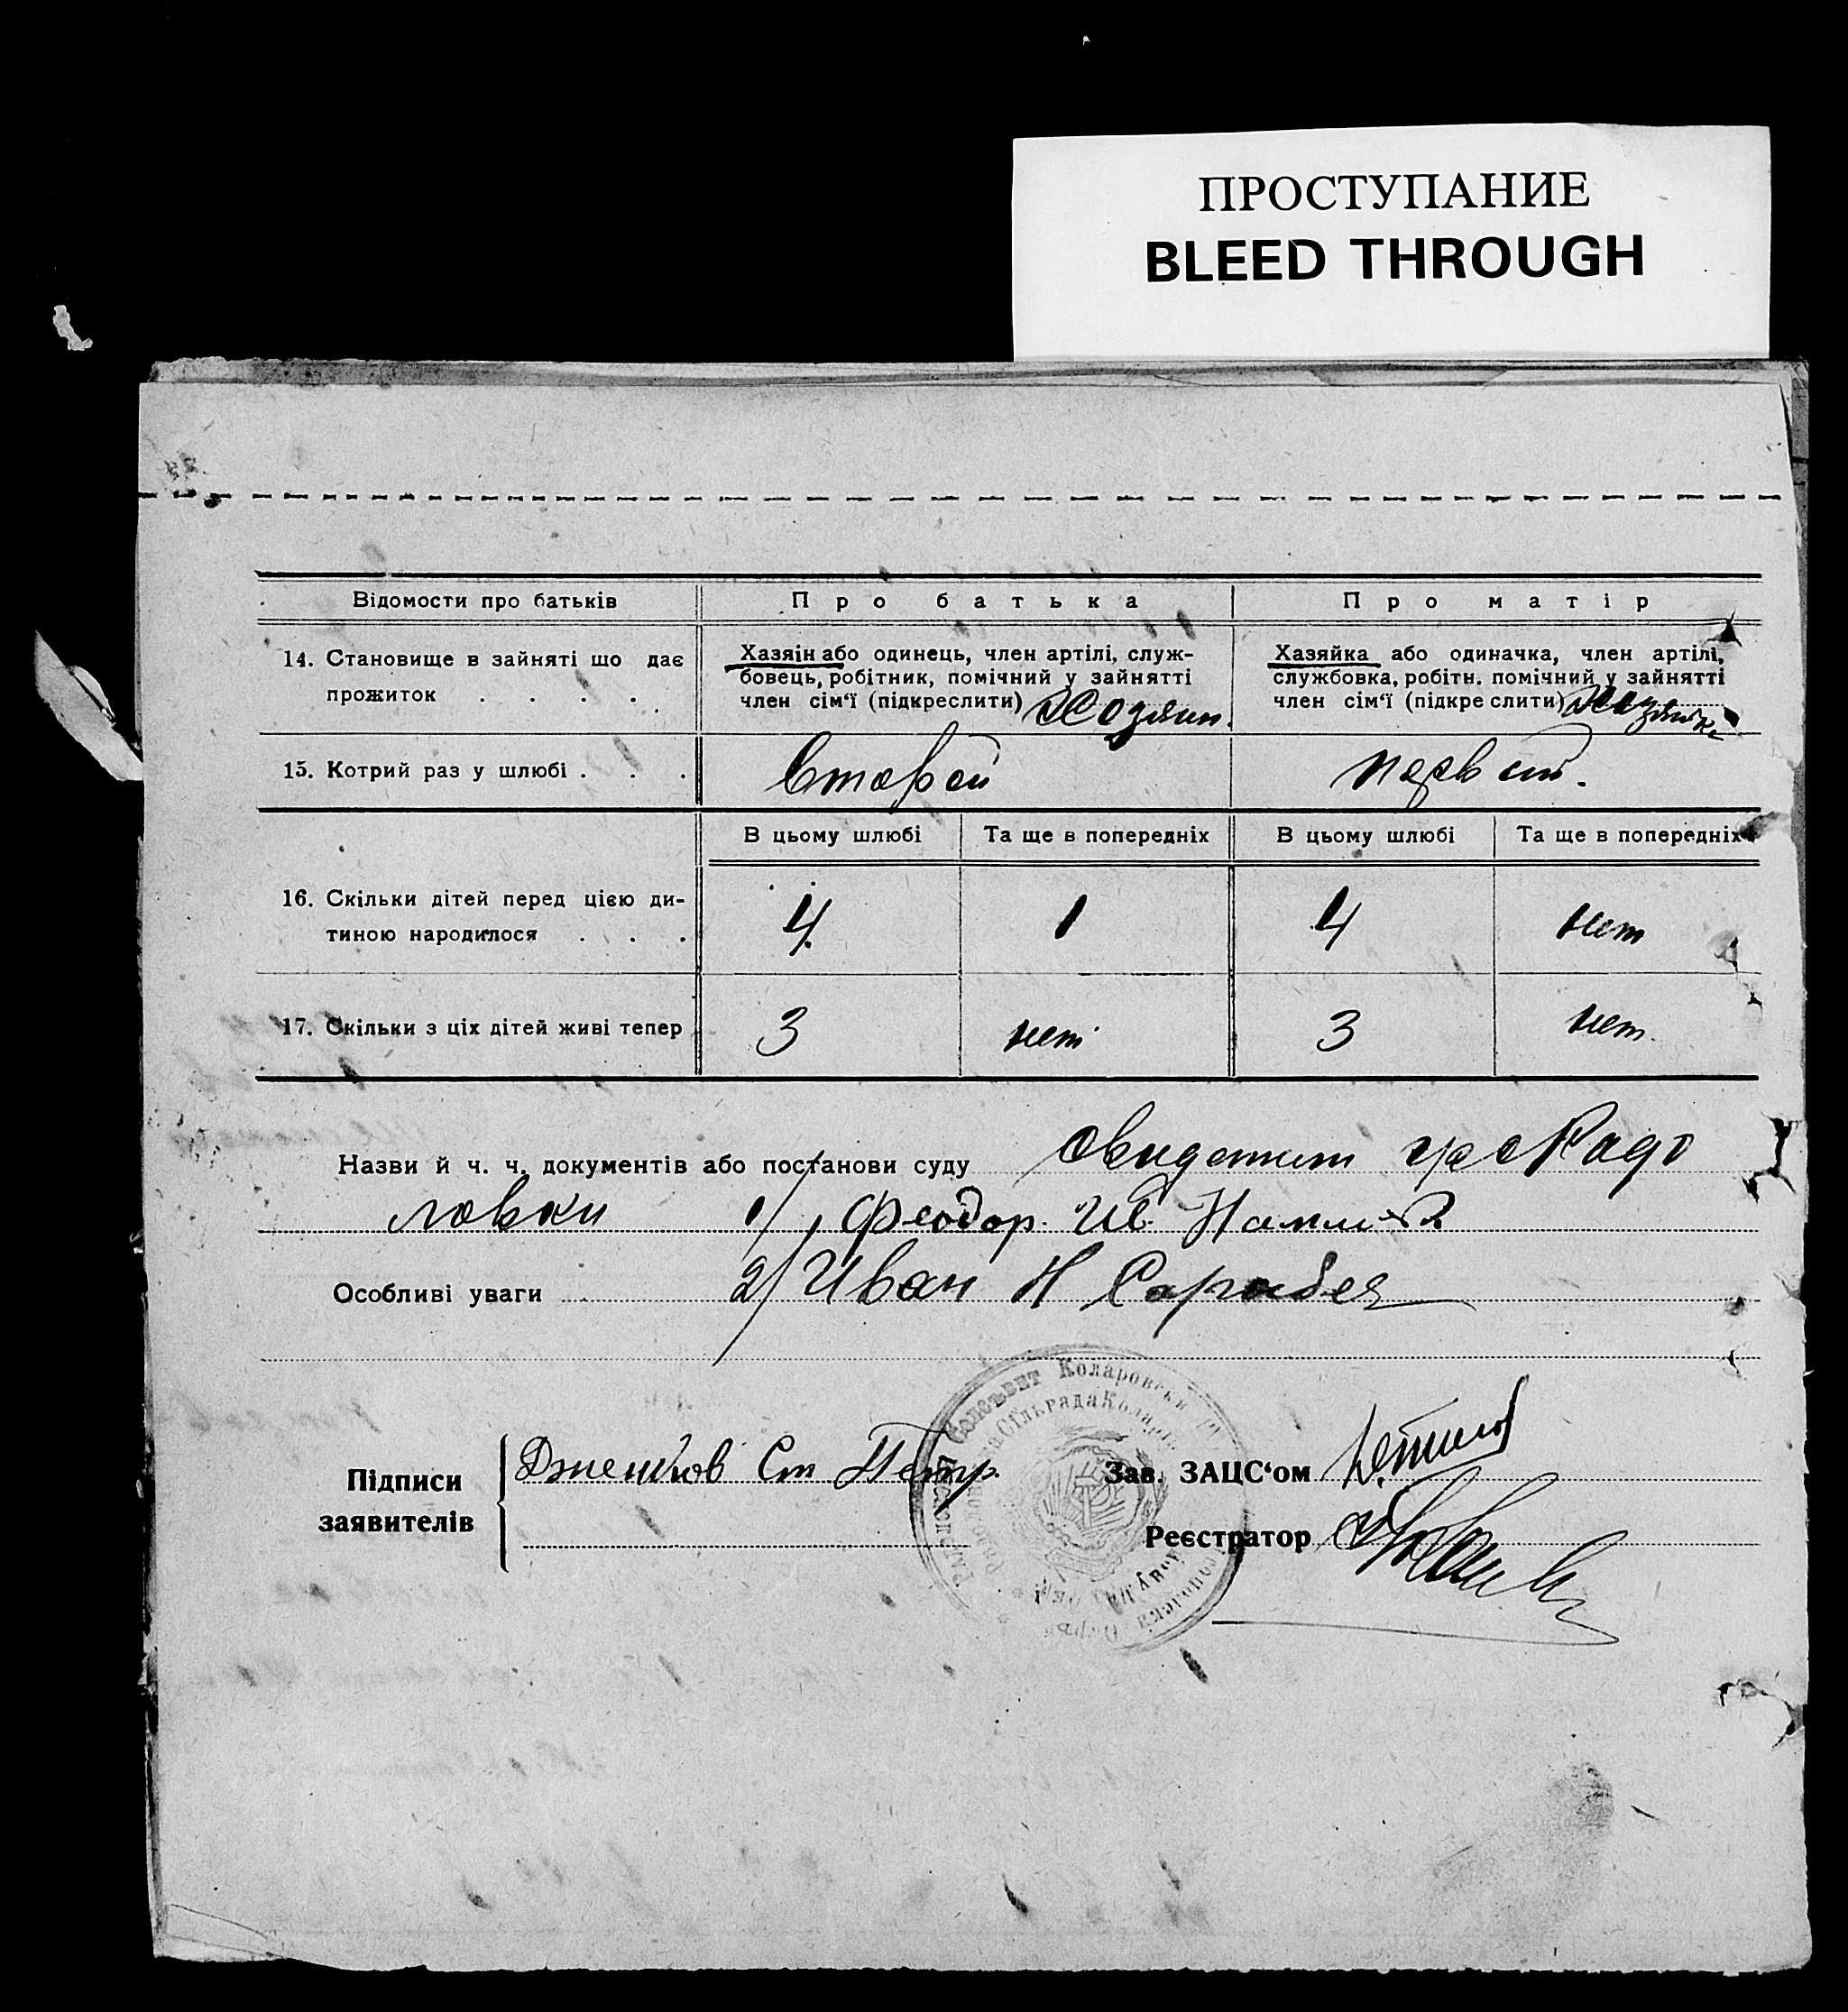 ПРОСТУПАНИЕ
BLEED THROUGH
Відомости про батьків
Про батька
Про матір
14. Становище в зайняті що дає
прожиток . . . .
Хазяїн або одинець, член артілі, служ-
бовець, робітник, помічний у зайнятті
член сім‘ї (підкреслити) Хозяин.
Хазяйка або одиначка, член артілі,
службовка, робітн. помічний у зайнятті
член сім‘ї (підкреслити) Хозяйка
15. Котрий раз у шлюбі . . .
Второй
Первый.
В цьому шлюбі
Та ще в попередніх
В цьому шлюбі
Та ще в попередніх
16. Скільки дітей перед цією ди-
тиною народилося . . .
4
1
4
нет
17. Скільки з ціх дітей живі тепер
3
нет
3
нет.
Назви й ч. ч. документів або постанови суду
ловки 1/ Феодор. Ив.
Особливі уваги 2/ Иван Н
Підписи
заявителів
Ст Петр.
Зав. ЗАЦС‘ом
Реєстратор